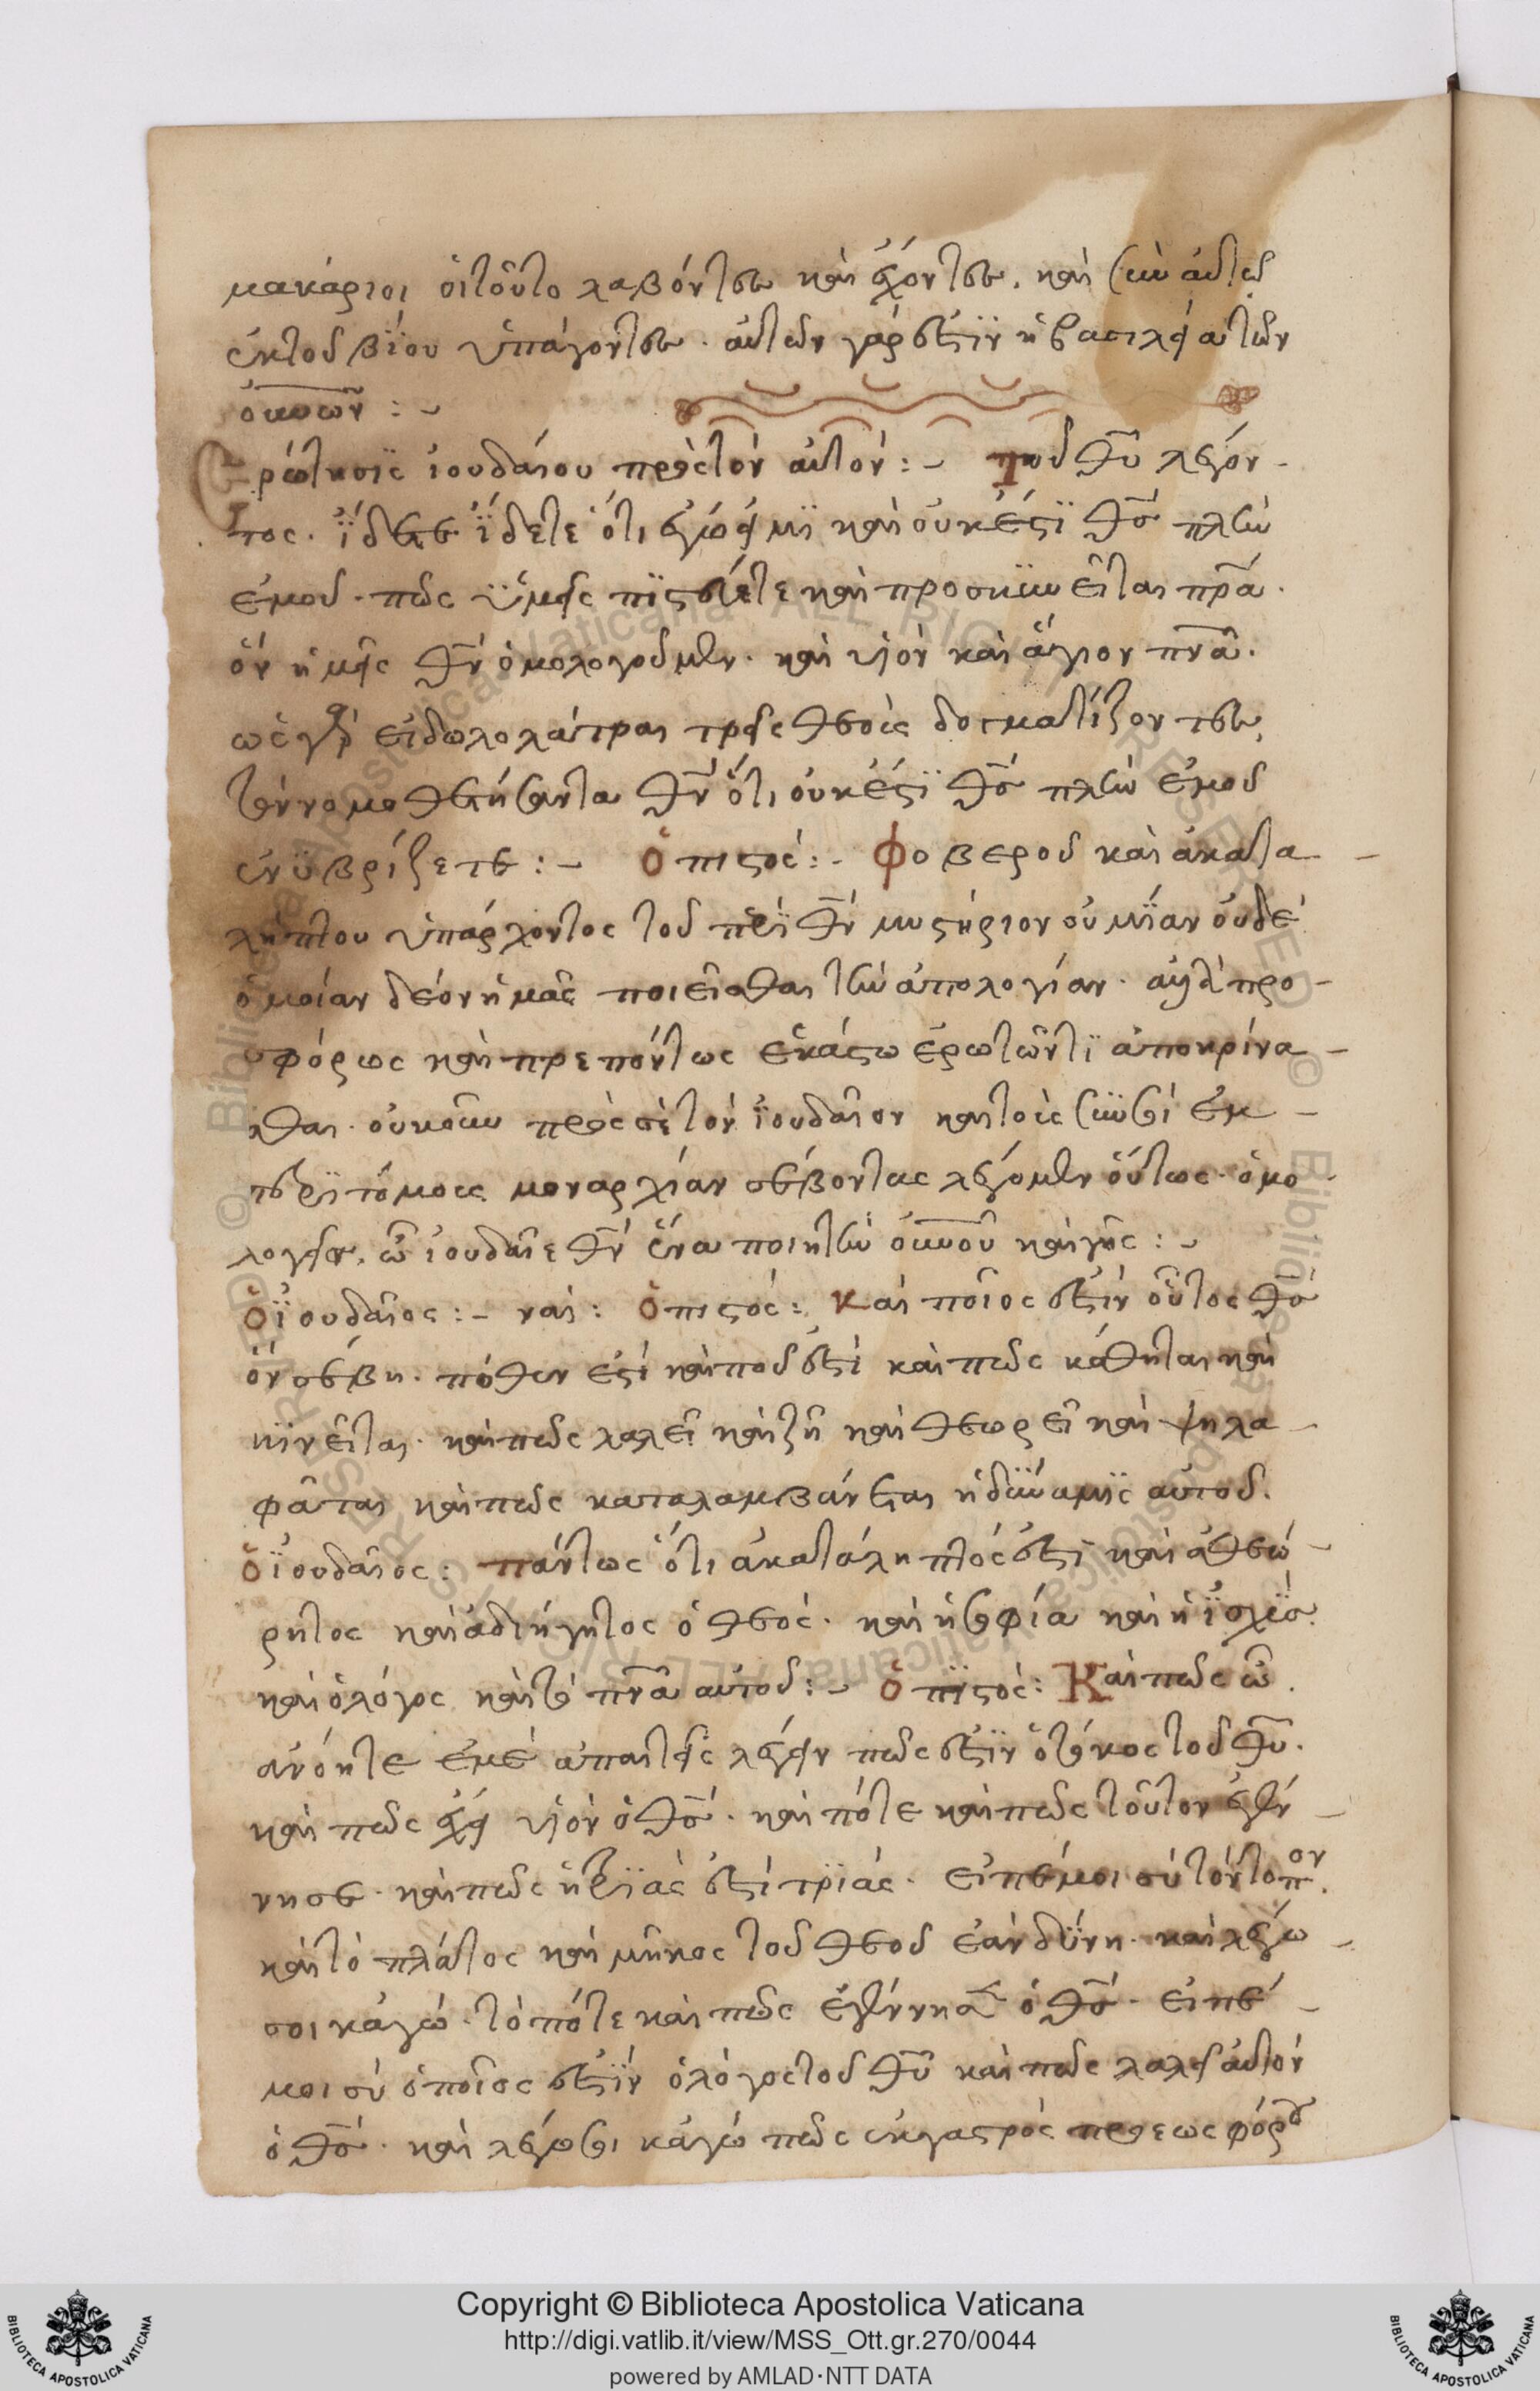 μακάριοι οἱ τοῦτο λαβόντες καὶ ἔχοντες. καὶ σὺν αὐτῶ
ἐκ τοῦ βΐου ὑπάγοντες. αὐτῶν γάρ ἐστϊν ἡ βασιλεία τῶν
οὐνῶν :~
Ερώτησϊς ἰουδαίου πρὸς τὸν αὐτὸν :~ τοῦ θῦ λέγον-
τος. ἴδετε ἴδετε ὅτι ἐγώ εἰμϊ καὶ οὐκ ἔστϊ θς πλὴν
ἐμοῦ. πῶς ὑμεῖς πϊστεύετε καὶ προσκϋνεῖται πρα.
ὅν ἡμεῖς θν ὁμολογοῦμεν. καὶ υἱὸν καὶ ἅγιον πνα.
ὡς γὰρ εἰδωλολάτραι τρεῖς θεοὺς δογματίζοντες,
τὸν νομοθετήσαντα θν ὅτι οὐκ ἔστϊ θς πλὴν ἐμοῦ
ἐνϋβρίζετε :~ ὁ πιστός :~ Φοβεροῦ καὶ ἀκατα-
λήπτου ὑπάρχοντος τοῦ περϊ θν μυστήριον οὐ μΐαν οὐδὲ
ὁμοίαν δέον ἡμᾶς ποιεῖσθαι τὴν ἀπολογίαν. ἀλλὰ προ-
σφόρως καὶ πρεπόντως ἑκάστω ἐρωτῶντϊ ἀποκρίνα-
σθαι. οὐκοῦν πρὸς σὲ τὸν ἰουδαῖον καὶ τοὺς σϋν σοὶ ἐκ-
περϊτόμοις μοναρχίαν σέβοντας λέγομεν οὕτως. ὁμο
λογεῖς, ὦ ἰουδαῖε θν ἕνα ποιητὴν οὐνοῦ καὶ γῆς :~
ὁ ἰουδαῖος :~ ναί : ὁ πιστός : καὶ ποῖος ἐστϊν οὗτος θς
ὅν σέβη. πόθεν ἐστὶ καὶ ποῦ ἐστὶ καὶ πῶς κάθηται καὶ
κϊνεῖται. καὶ πῶς λαλεῖ καὶ ζῆ καὶ θεωρεῖ καὶ ψηλα-
φᾶται καὶ πῶς καταλαμβάνεται ἡ δϋναμϊς αὐτοῦ.
ὁ ἰουδαῖος : πάντως ὅτι ἀκατάληπτός ἐστϊ καὶ ἀθεώ-
ρητος καὶ ἀδιήγητος ὁ θεός. καὶ ἡ σοφία καὶ ἡ ἰσχϋς.
καὶ ὁ λόγος καὶ τὸ πνα αὐτοῦ :~ ὁ πϊστός : Καὶ πῶς ὦ
ἀνόητε ἐμὲ ἀπαιτεῖς λέγειν πῶς ἐστϊν ὁ τόκος τοῦ θῦ.
καὶ πῶς ἔχει υἱὸν ὁ θς. καὶ πότε καὶ πῶς τοῦτον ἐγέν-
νησε. καὶ πῶς ἡ τρϊὰς ἐστὶ τρϊάς. εἰπέ μοι σὺ τὸν τόπον.
καὶ τὸ πλάτος καὶ μῆκος τοῦ θεοῦ ἐὰν δϋνη. καὶ λέγω-
σοι κἀγώ. τὸ πότε καὶ πῶς ἐγέννησε ὁ θς. εἰπέ-
μοι σὺ ὁποῖος ἐστϊν ὁ λόγος τοῦ θῦ καὶ πῶς λαλεῖ αὐτὸν
ὁ θς. καὶ λέγω σοι κἀγώ πῶς ἐκ γαστρὸς πρὸ ἑωσφόρου
Copyright © Biblioteca Apostolica Vaticana
http://digi.vatlib.it/view/MSS_Ott.gr.270/0044
powered by AMLAD·NTT DATA